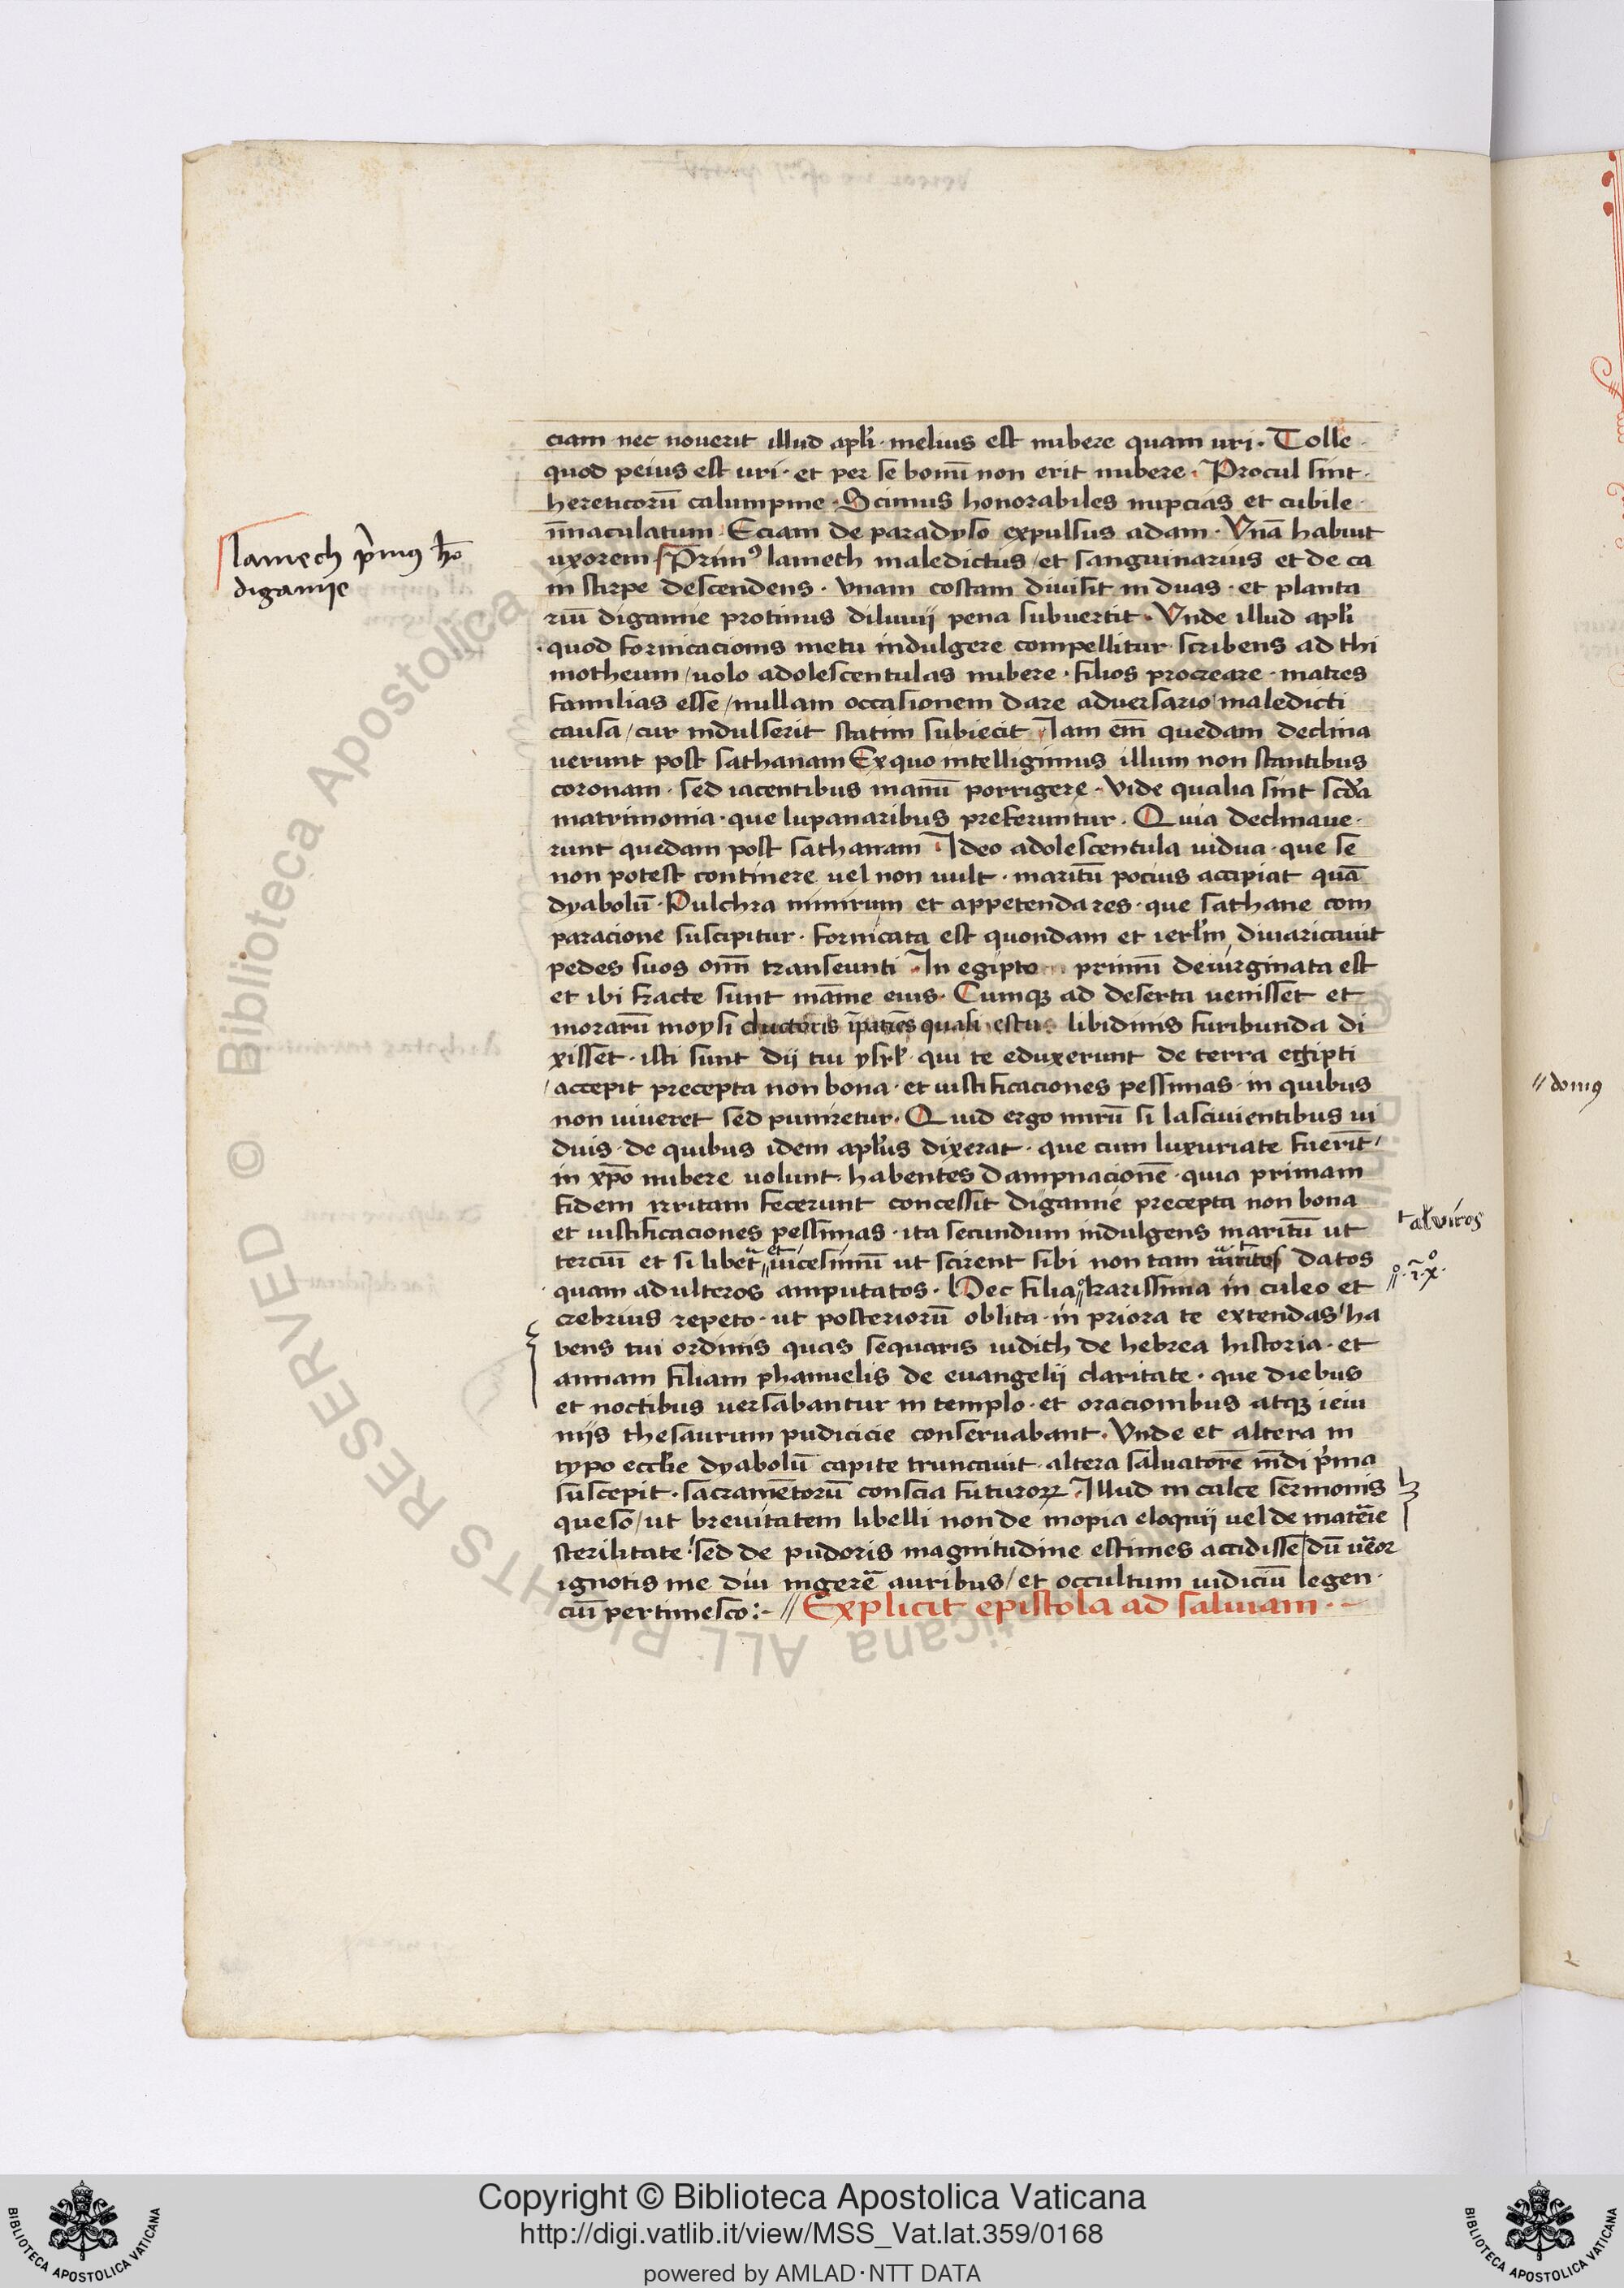 ciam nec noverit illud apl̃i · melius est nubere quam uri · Tolle ·
quod peius est uri · et per se bonũ non erit nubere · Procul sint ·
hereticorũ calumpnie · Scimus honorabiles nupcias et cubile ·
ĩmaculatum · Eciam de paradyso expulsus adam · Vnã habuit
uxorem / Primꝰ lamech maledictus / et sanguinarius et de ca
in stirpe descendens · vnam costam divisit in duas · et planta
riũ digamie protinus diluuij pena subvertit · Vnde illud apl̃i
· quod fornicacionis metu indulgere compellitur scribens ad thi
motheum / uolo adolescentulas nubere · filios procreare · matres
familias esse / nullam occasionem dare adversario / maledicti
causa / cur indulserit statim subiecit · Iam em̃ quedam declina
verunt post sathanam Ex quo intelligimus illum non stantibus
coronam · sed iacentibus manũ porrigere · Vide qualia sint scđa
matrimonia · que lupanaribus preferuntur · Quia declinaue ·
runt quedam post sathanam Ideo adolescentula uidua · que se
non potest continere uel non uult · maritũ pocius accipiat quã
dyabolũ · Pulchra nimirum et appetenda res · que sathane com
paracione suscipitur · Fornicata est quondam et ierl̃m divaricauit
pedes suos om̃i transeunti · In egipto primũ deuirginata est
et ibi fracte sunt mãme eius · Cumqȝ ad deserta uenisset et
morarũ moysi ductoris ĩpatiẽs quasi estus libidinis furibunda di
xisset · isti sunt dij tui ysrl̃ · qui te eduxerunt de terra egipti
/ accepit precepta non bona · et iustificaciones pessimas · in quibus
non uiveret sed puniretur · Quid ergo mirũ si lascivientibus ui
duis · de quibus idem apl̃us dixerat · que cum luxuriate fuerĩt /
in xp̃o nubere uolunt · habentes dampnacionẽ · quia primam
fidem irritam fecerunt concessit digamie precepta non bona
et iustificaciones pessimas · ita secundum indulgens maritũ ut
terciũ et si liberet // uicesimũ ut scirent sibi non tam uiritos datos
quam adulteros amputatos · Hec filia // karissima in culeo et
crebrius repeto · ut posteriorũ oblita · in priora te extendas / ha
bens tui ordinis quas sequaris iudith de hebrea historia · et
annam filiam phanuelis de euangelij claritate · que diebus
et noctibus uersabantur in templo · et oracionibus atqȝ ieiu
nijs thesaurum pudicicie conseruabant · Vnde et altera in
typo eccl̃ie dyabolũ capite truncauit · altera saluatorẽ mũdi p̃ma
suscepit · sacramẽtorũ conscia futuroꝝ · Illud in calce sermonis
queso / ut breuitatem libelli non de inopia eloquij uel de materie
sterilitate / sed de pudoris magnitudine estimes accidisse / dũ uereor
ignotis me diu ingerẽ auribus / et occultum iudiciũ legen ·
ciũ pertimesco :- // Explicit epistola ad saluiam · -
lamech p̃mꝰ hõ
digamije
al̃ viros
// domꝰ
Copyright © Biblioteca Apostolica Vaticana
http://digi.vatlib.it/view/MSS_Vat.lat.359/0168
powered by AMLAD·NTT DATA
BIBLIOTECA APOSTOLICA VATICANA
BIBLIOTECA APOSTOLICA VATICANA
© Biblioteca Apostolica Vaticana ALL RIGHTS RESERVED